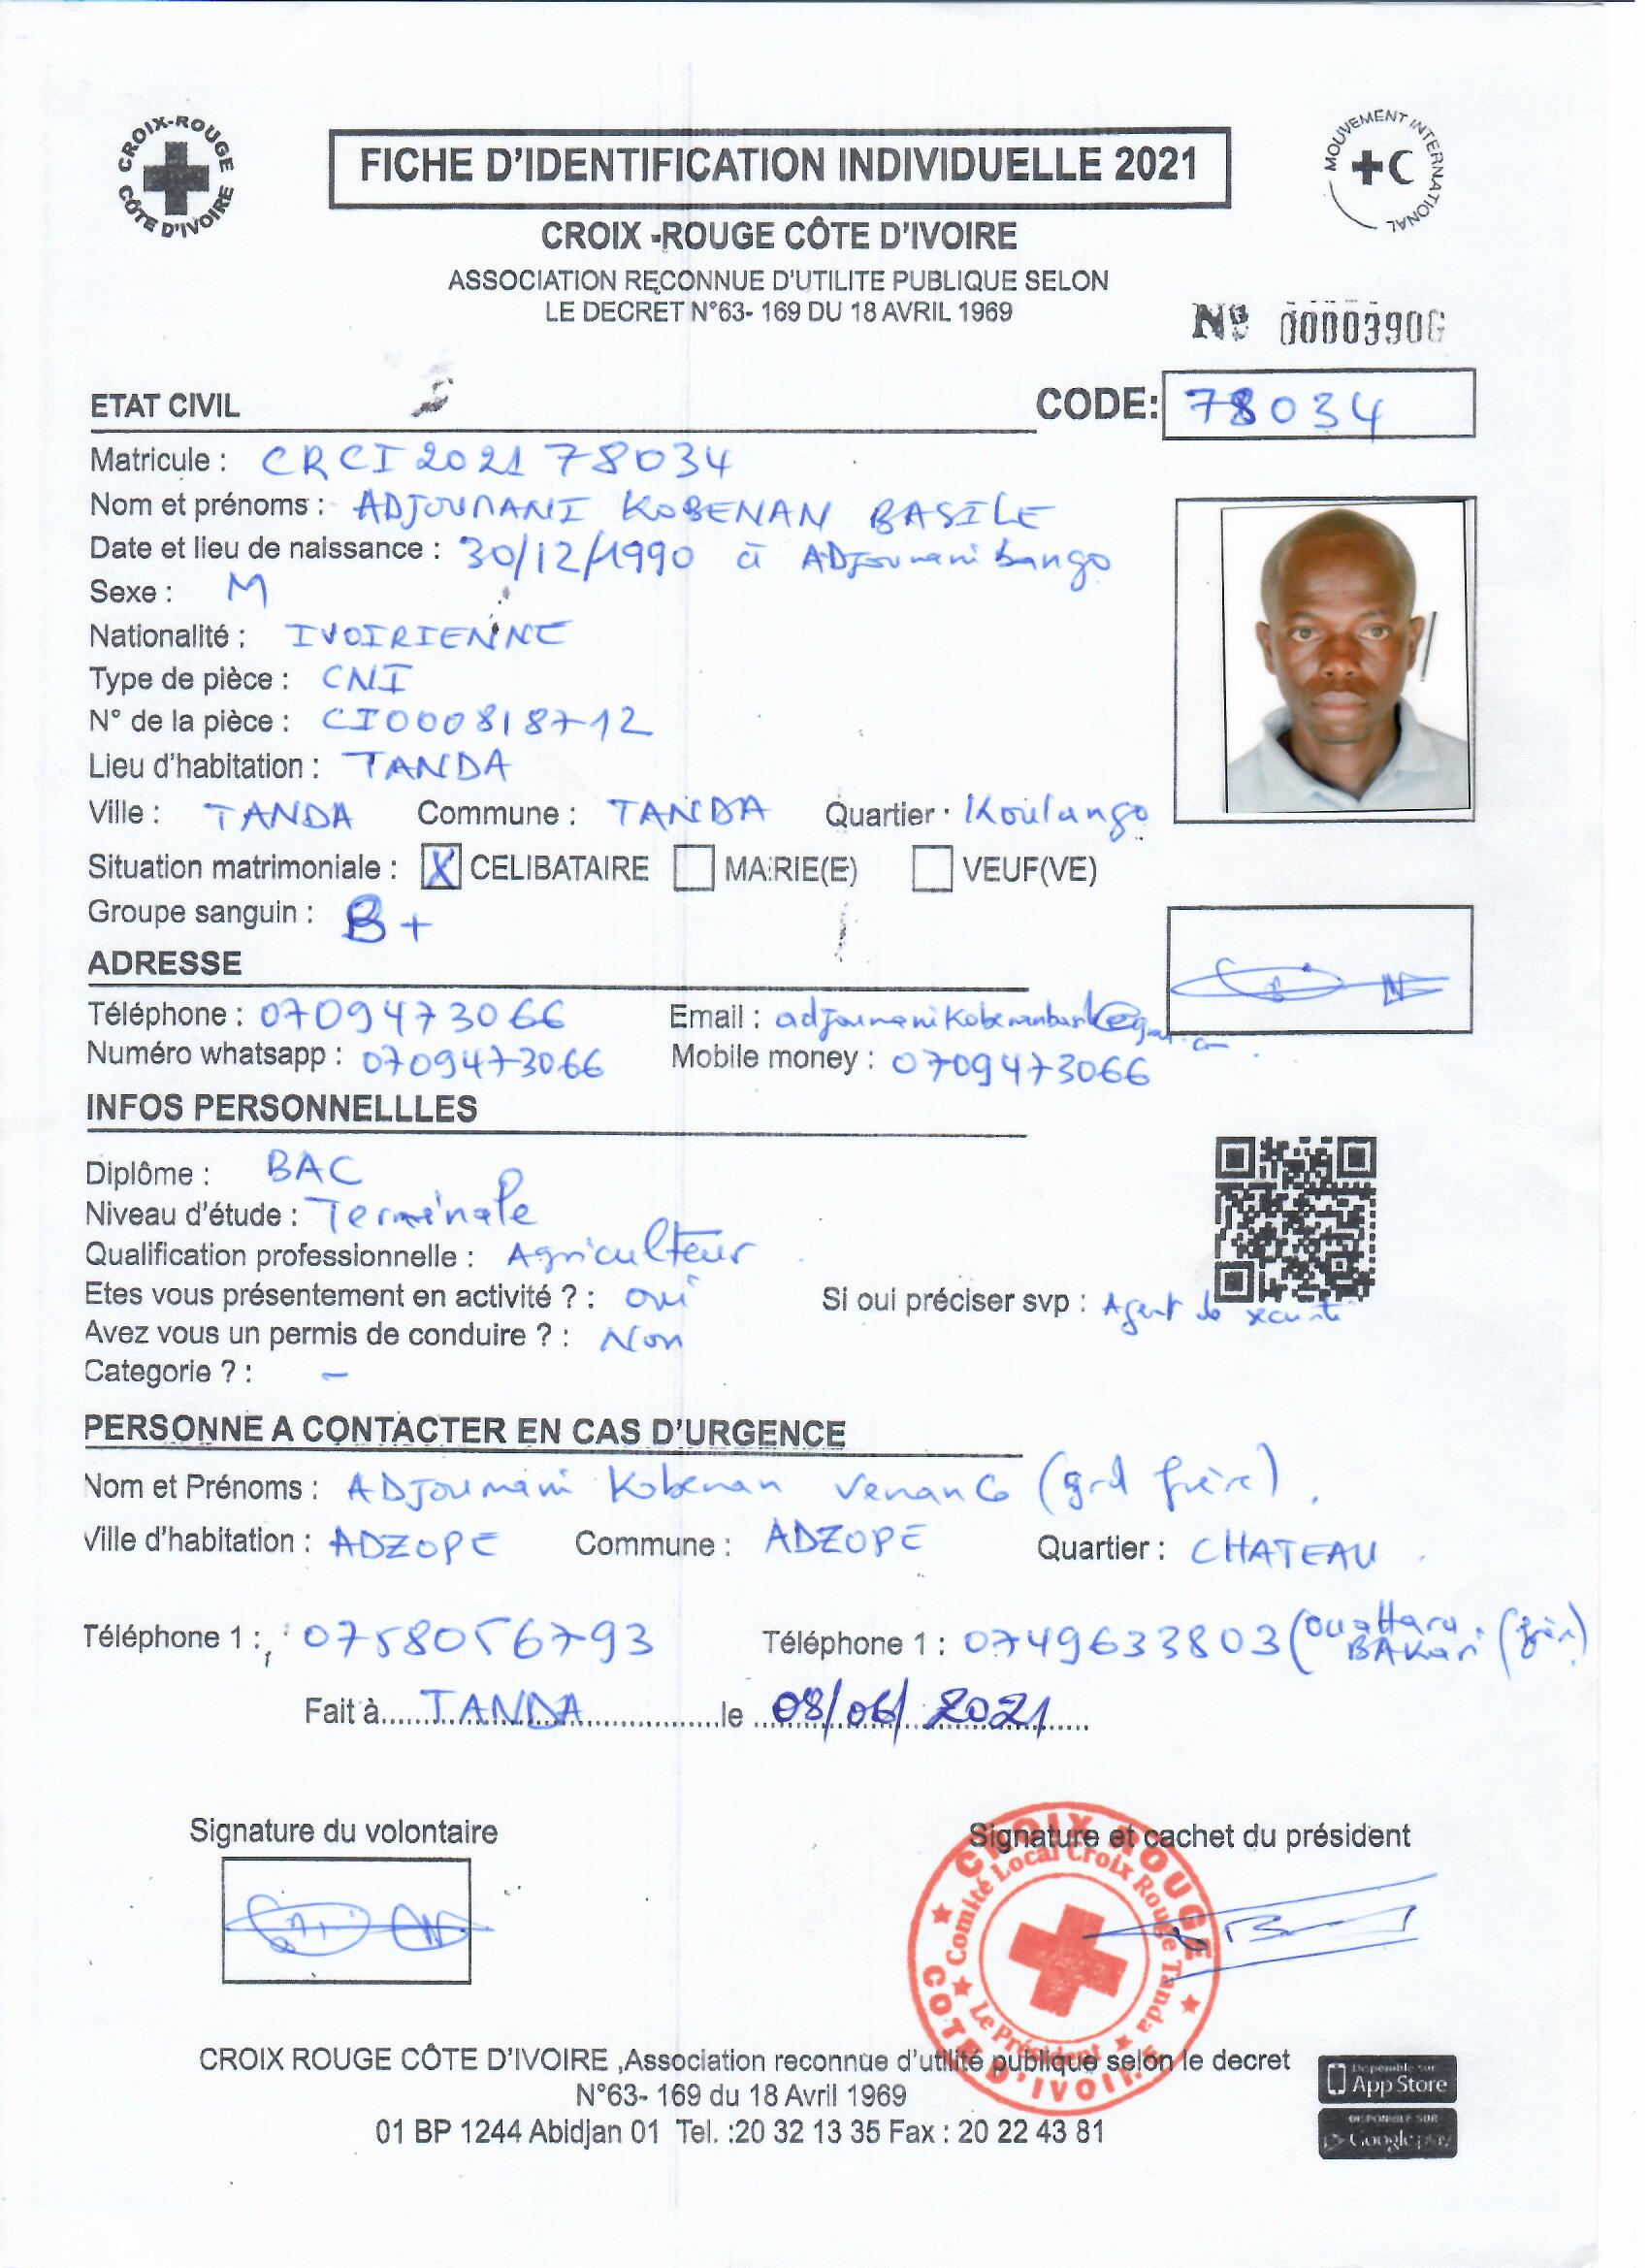 CROIX-ROUGE CÔTE D'IVOIRE
FICHE D'IDENTIFICATION INDIVIDUELLE 2021
MOUVEMENT INTERNATIONAL
CROIX -ROUGE CÔTE D'IVOIRE
ASSOCIATION RECONNUE D'UTILITE PUBLIQUE SELON
LE DECRET N°63- 169 DU 18 AVRIL 1969
Nº 00003906
ETAT CIVIL
CODE: 78034
Matricule : CRCI2021 78034
Nom et prénoms : ADJOUMANI KOBENAN BASILE
Date et lieu de naissance : 30/12/1990 à ADJoumani bango
Sexe : M
Nationalité : IVOIRIENNE
Type de pièce : CNI
N° de la pièce : CI000818712
Lieu d'habitation : TANDA
Ville : TANDA Commune : TANDA Quartier : Koulango
Situation matrimoniale : X CELIBATAIRE MARIE(E) VEUF(VE)
Groupe sanguin : B+
ADRESSE
Téléphone : 0709473066 Email :
Numéro whatsapp : 0709473066 Mobile money : 0709473066
INFOS PERSONNELLLES
Diplôme : BAC
Niveau d'étude : Terminale
Qualification professionnelle : Agriculteur
Etes vous présentement en activité ? : oui Si oui préciser svp : Agent de sécurité
Avez vous un permis de conduire ? : Non
Categorie ? : –
PERSONNE A CONTACTER EN CAS D'URGENCE
Nom et Prénoms : ADJoumani Kobenan Venance (grd frère).
Ville d'habitation : ADZOPE Commune : ADZOPE Quartier : CHATEAU
Téléphone 1 : 0758056793 Téléphone 1 : 0749633803 (Ouattara BAKari (frère)
Fait à TANDA le 08/06/2021
Signature du volontaire
Signature et cachet du président
CROIX ROUGE
COTE D'IVOIRE
Comité Local Croix Rouge Tanda
Le Président
CROIX ROUGE CÔTE D'IVOIRE ,Association reconnue d'utilité publique selon le decret
N°63- 169 du 18 Avril 1969
01 BP 1244 Abidjan 01 Tel. :20 32 13 35 Fax : 20 22 43 81
Disponible sur
App Store
DISPONIBLE SUR
Google play